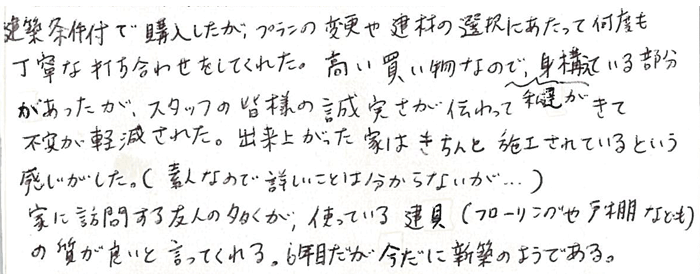 建築条件付で購入したが、プランの変更や建材の選択にあたって何度も
丁寧な打ち合わせをしてくれた。高い買い物なので、身構えている部分
私達が
があったが、スタッフの皆様の誠実さが伝わってきて
不安が軽減された。出来上がった家はきちんと施工されているという
感じがした。(素人なので詳しいことは分からないが…)
家に訪問する友人の多くが、使っている建具(フローリングや戸棚なども)
の質が良いと言ってくれる。6年目だが今だに新築のようである。